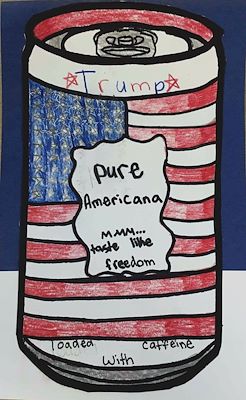 Trump
pure
Americana
mmm...
taste like
freedom
loaded caffeine
with